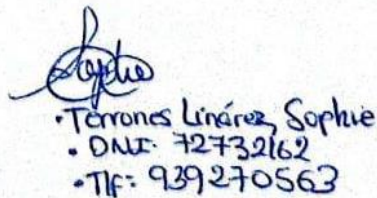 Sophie
• Terrones Linárez, Sophie
• DNI: 72732162
• Tlf: 939270563